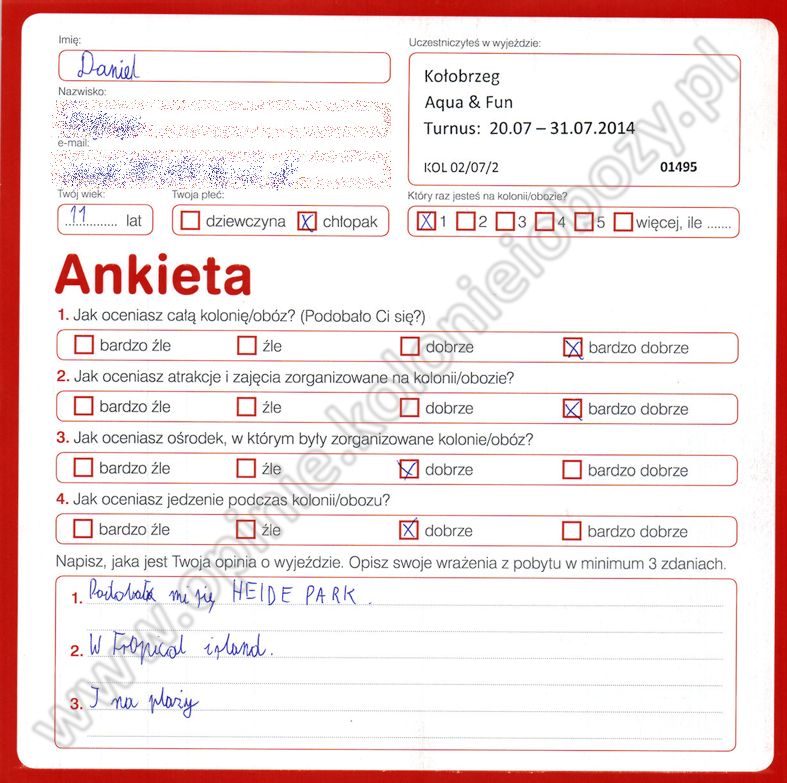 Imię:
Daniel
Uczestniczyłeś w wyjeździe:
Kołobrzeg
Aqua & Fun
Turnus: 20.07 – 31.07.2014
KOL 02/07/2 01495
Nazwisko:
e-mail:
Twój wiek:
11 lat
Twoja płeć:
dziewczyna X chłopak
Który raz jesteś na kolonii/obozie?
X 1 2 3 4 5 więcej, ile .......
Ankieta
1. Jak oceniasz całą kolonię/obóz? (Podobało Ci się?)
bardzo źle źle dobrze X bardzo dobrze
2. Jak oceniasz atrakcje i zajęcia zorganizowane na kolonii/obozie?
bardzo źle źle dobrze X bardzo dobrze
3. Jak oceniasz ośrodek, w którym były zorganizowane kolonie/obóz?
bardzo źle źle X dobrze bardzo dobrze
4. Jak oceniasz jedzenie podczas kolonii/obozu?
bardzo źle źle X dobrze bardzo dobrze
Napisz, jaka jest Twoja opinia o wyjeździe. Opisz swoje wrażenia z pobytu w minimum 3 zdaniach.
1. Podobała mi się HEIDE PARK.
2. W Tropical island.
3. I na plaży
www.opinie.kolonieiobozy.pl